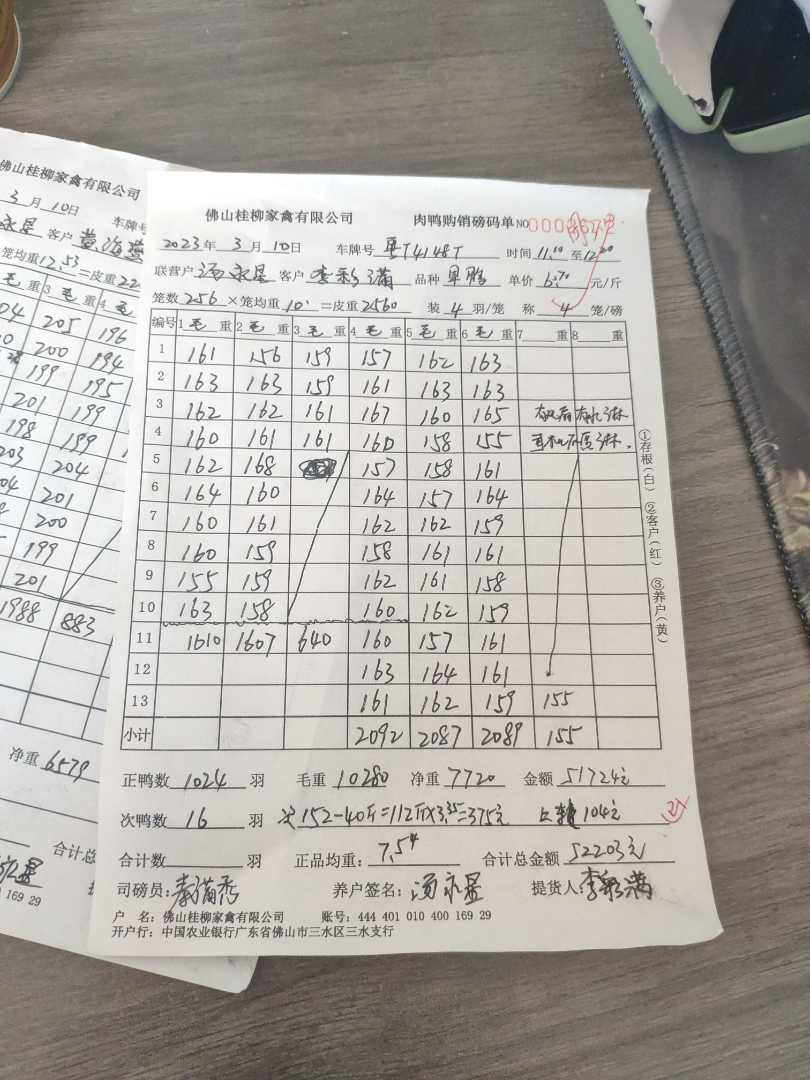 佛山桂柳家禽有限公司
3月10日 车牌号
客户
笼均重12.53=皮重22
毛 重 3 毛 重 4 毛
04 205 196
200 194
199 195
201 199
198 199
203 204
04 201
200
199
201
1988 883
净重 6579
合计总
169 29
佛山桂柳家禽有限公司 肉鸭购销磅码单 NO
2023年 3月10日 车牌号 粤T4148T 时间 11.00至12.20
联营户 汤永星 客户 李彩满 品种 单价 6.70 元/斤
笼数 256 ×笼均重 10. =皮重 2560 装 4 羽/笼 称 4 笼/磅
编号 1 毛 重 2 毛 重 3 毛 重 4 毛 重 5 毛 重 6 毛 重 7 重 8 重
1 161 156 159 157 162 163
2 163 163 159 161 163 163
3 162 162 161 167 160 165
4 160 161 161 160 158 155
5 162 168 157 158 161
6 164 160 164 157 164
7 160 161 162 162 159
8 160 159 158 161 161
9 155 159 162 161 158
10 163 158 160 162 159
11 1610 1607 640 160 157 161
12 163 164 161
13 161 162 159 155
小计 2092 2087 2089 155
正鸭数 1024 羽 毛重 10280 净重 7720 金额 51724元
次鸭数 16 羽 次152-40斤=112斤×3.35=375元 104元
合计数 羽 正品均重: 7.54 合计总金额 52203元
司磅员: 养户签名: 汤永星 提货人: 李彩满
户 名: 佛山桂柳家禽有限公司 账号: 444 401 010 400 169 29
开户行: 中国农业银行广东省佛山市三水区三水支行
①存根(白) ②客户(红) ③养户(黄)